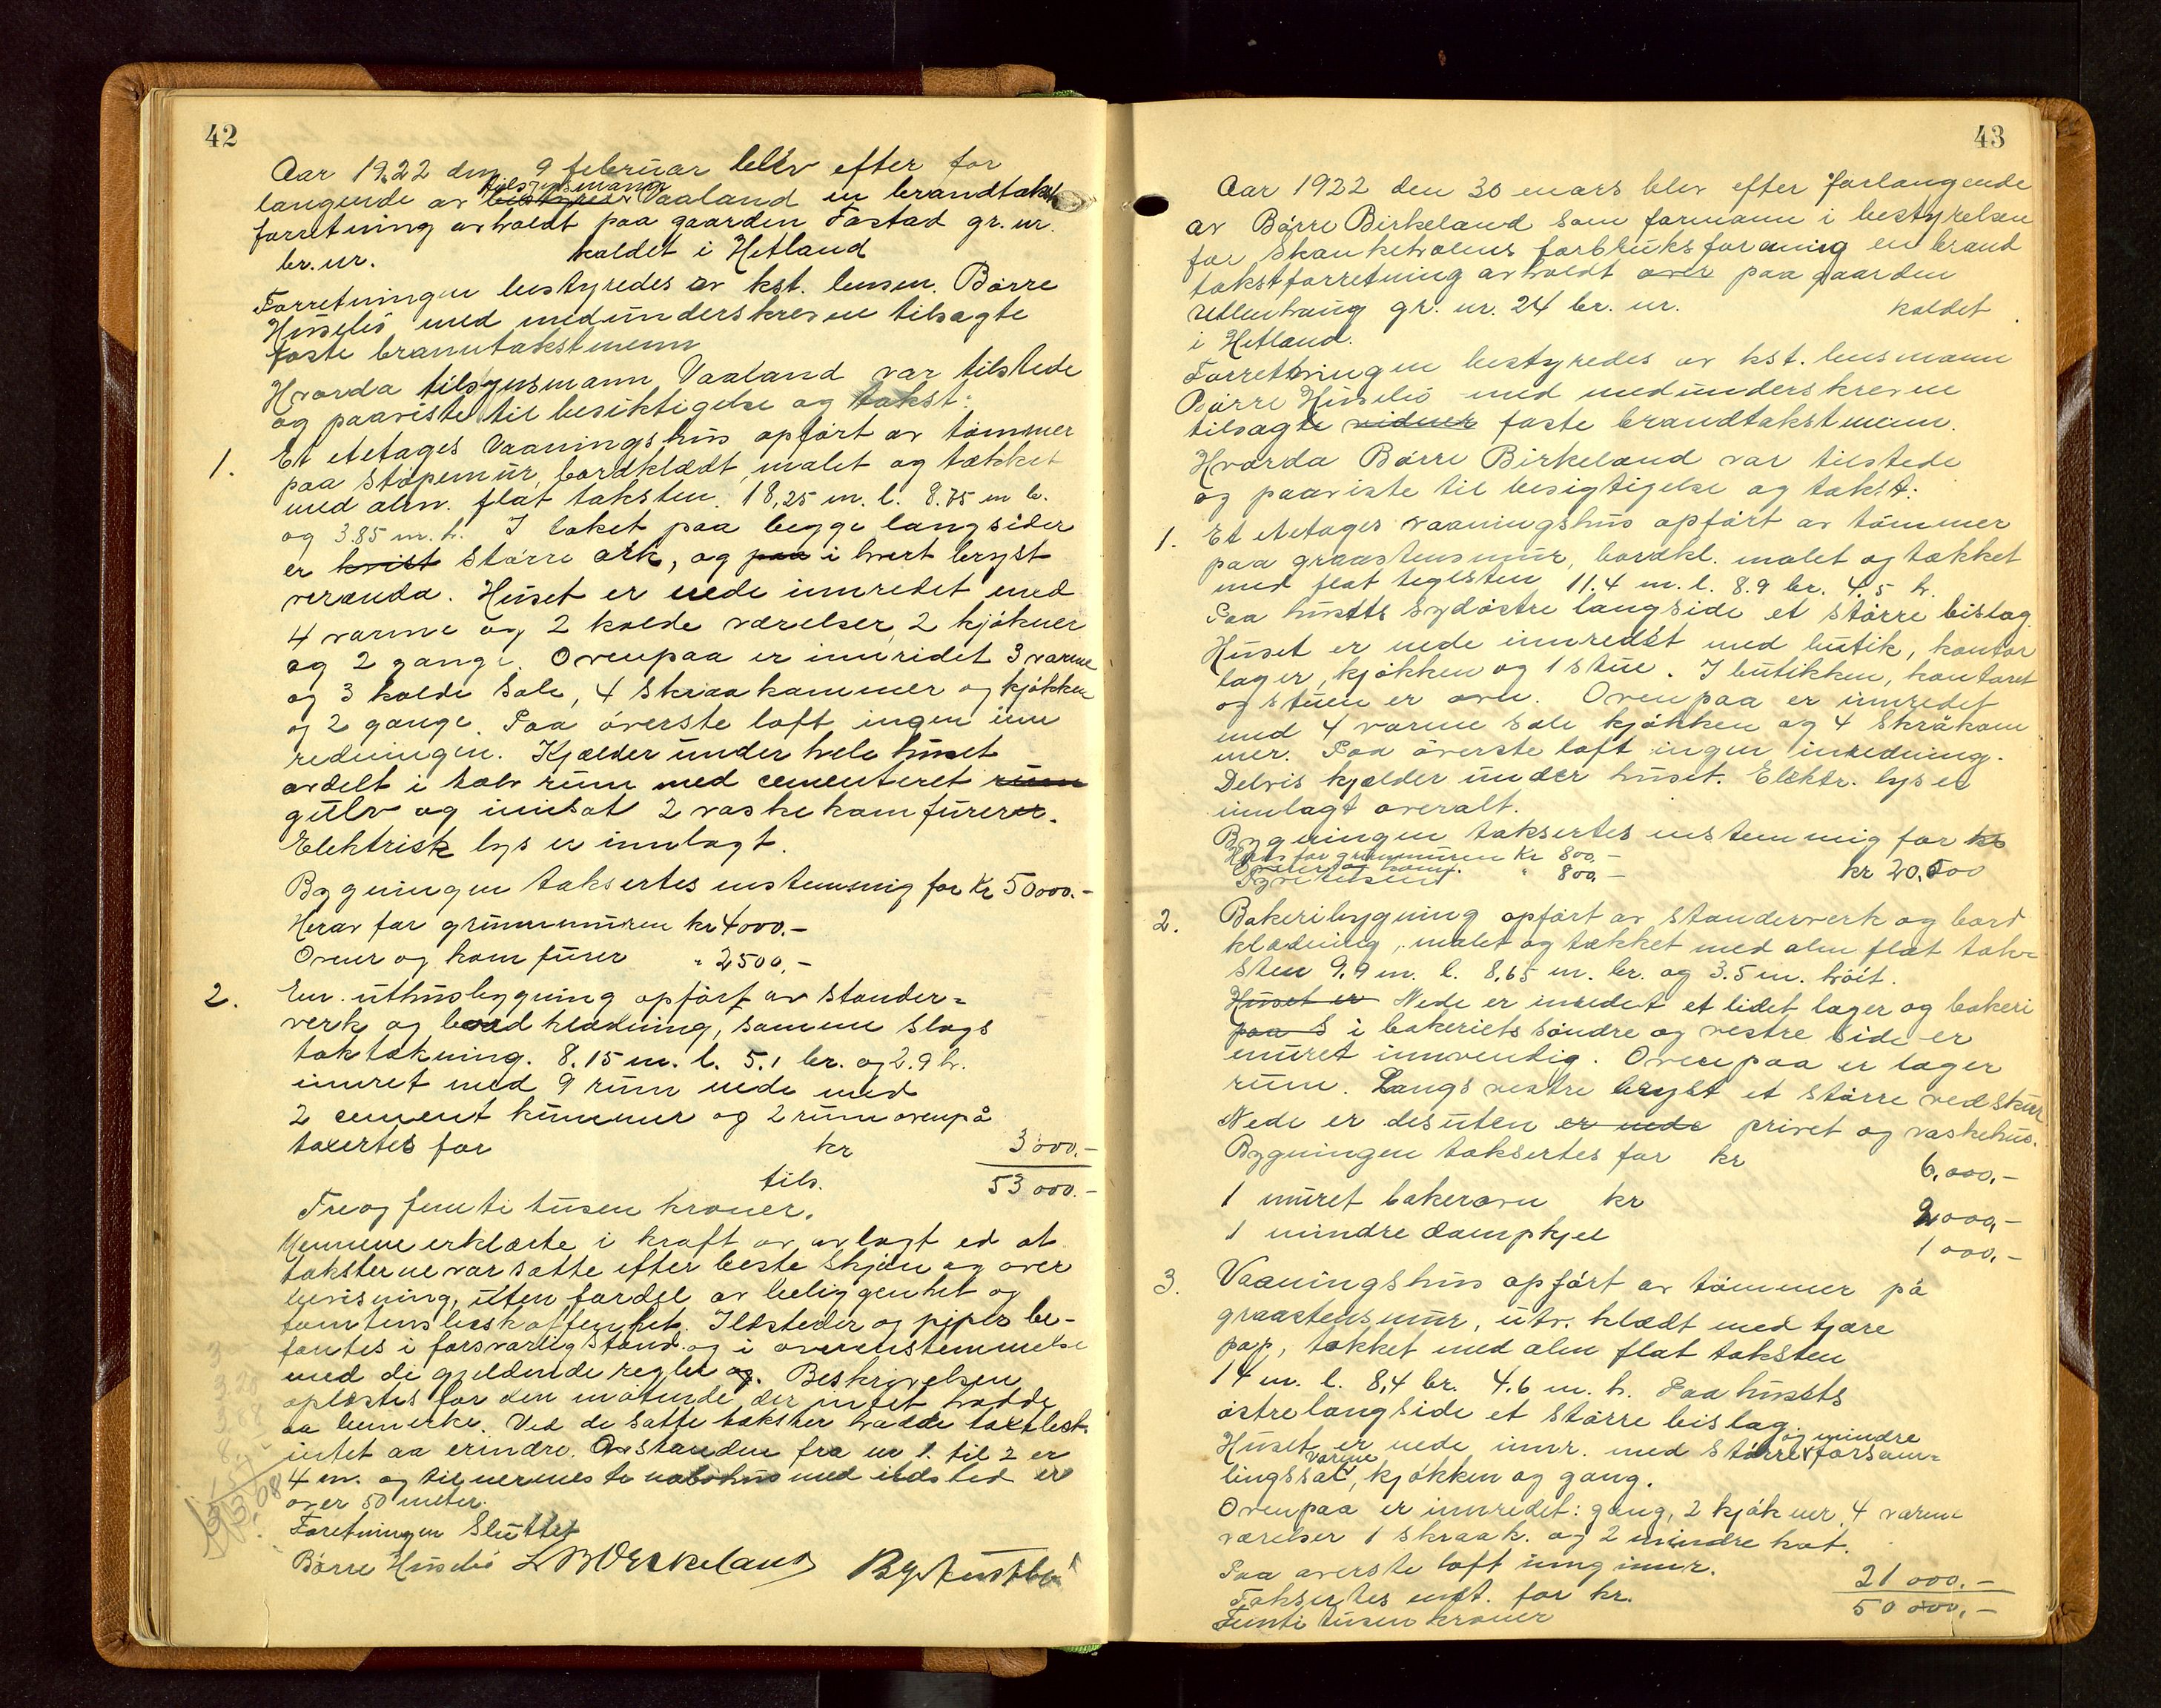 42
Aar 1922 den 9 februar blev efter for
langende av tilsynsmann Vaaland en brandtakst
forretning avholdt paa gaarden Tastad gr. nr.
br. nr. kaldet i Hetland
Forretningen bestyredes av kst. lensm. Børre
Husebø med medunderskrevne tilsagte
faste branntakstmenn
Hvorda tilsynsmann Vaaland var tilstede
og paaviste til besiktigelse og takst:
1. Et etetages Vaaningshus opført av tømmer
paa støpemur, bordklædt, malet og tækket
med alm. flat taksten. 18,25 m. l. 8.75 m b.
og 3.85 m. h. I taket paa begge langsider
er kvist større ark, og paa i hvert bryst
veranda. Huset er nede innredet med
4 varme og 2 kolde værelser, 2 kjøkner
og 2 gange. Ovenpaa er innridet 3 varme
og 3 kolde sale, 4 skraakammer og kjøkken
og 2 gange. Paa øverste loft ingen inn
redningen. Kjælder under hele huset
avdelt i tolv rum med cementeret rum
gulv og innsat 2 vaskekamfurer.
Elektrisk lys er innlagt.
Bygningen taksertes enstemmig for Kr 50000.-
Herav for grunnmuren kr 4000.-
Ovner og komfurer " 2500,-
2. En uthusbygning opført av stander=
verk og bordklædning, samme slags
taktækning. 8.15 m. l. 5.1 br. og 2.9 h.
innret med 9 rum nede med
2 cement kummer og 2 rum ovenpå
taxertes for kr 3000.-
tils. 53000.-
Treogfemti tusen kroner.
Mennene erklærte i kraft av avlagt ed at
taksterne var satte efter beste skjøn og over
bevisning, uten fordel av beliggenhet og
tomtens beskaffenhet. Ildsteder og piper be-
fantes i forsvarlig stand og i overenstemmelse
med de gjeldende regler og. Beskrivelsen
oplæstes for den møtende der intet hadde
aa bemerke. Ved de satte takster hadde taxtbest.
intet aa erindre. Avstanden fra nr 1. til 2 er
4 m. og til nermeste nabohus med ildsted er
over 50 meter.
Foretningen Sluttet
Børre Husebø
43
Aar 1922 den 30 mars blev efter forlangende
av Børre Birkeland som formann i bestyrelsen
for Skankeholens forbruksforening en brand
takstforretning avholdt over paa gaarden
Ullenhaug gr. nr. 24 br. nr. kaldet
i Hetland.
Forretningen bestyredes av kst. lensmann
Børre Husebø med medunderskrevne
tilsagte vidner faste brandtakstmenn.
Hvorda Børre Birkeland var tilstede
og paaviste til besigtigelse og takst:
1. Et etetages vaaningshus opført av tømmer
paa graastensmur, bordkl. malet og tækket
med flat teglsten 11.4 m. l. 8.9 br. 4.5 h.
Paa husets sydøstre langside et større bislag.
Huset er nede innredet med butik, kontor
lager, kjøkken og 1 stue. I butikken, kontoret
og stuen er ovn. Ovenpaa er innredet
med 4 varme sale kjøkken og 4 skråkam
mer. Paa øverste loft ingen inredning.
Delvis kjelder under huset. Elektr. lys er
innlagt overalt.
Bygningen taksertes enstemmig for kr
Herav for grunnmuren Kr 800.-
Ovner og komf. " 800.- kr 20.000
Tyve tusend
2. Bakeribygning opført av standerverk og bord
klædning, malet og tækket med alm flat tak-
sten 9.9 m. l. 8,65 m. br. og 3.5 m. høit.
Huset er Nede er inredet et lidet lager og bakeri
paa S i bakeriets søndre og vestre side er
muret innvendig. Ovenpaa er lager
rum. Langs vestre bryst et større vedskur
Nede er desuten er nede privet og vaskehus.
Bygningen taksertes for kr 6,000,-
1 muret bakerovn kr 2000,-
1 mindre dampkjel 1000,-
3. Vaaningshus opført av tømmer på
graastensmur, utv. klædt med tjære
pap, tækket med alm flat taksten
14 m. l. 8,4 br. 4.6 m. h. Paa husets
østre langside et større bislag.
Huset er nede innr. med større og mindre forsam=
lingssal, varme kjøkken og gang.
Ovenpaa er innredet: gang, 2 kjøkner, 4 varme
værelser 1 skraak. og 2 mindre kot.
Paa øverste loft ing innr.
Taksertes enst. for kr. 21000.-
Femti tusen kroner 50000,-